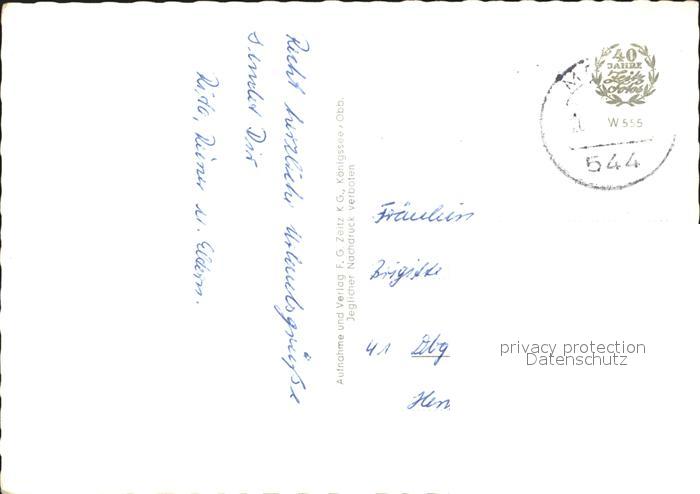 Recht herzliche Urlaubsgrüße
sendet Dir
Rita, Reiner u. Eltern.
Aufnahme und Verlag F. G. Zeitz K G., Königssee / Obb.
Jeglicher Nachdruck verboten
40
JAHRE
Zeitz
Fotos
W 555
544
Fräulein
Brigitte
41 Dbg
privacy protection
Datenschutz